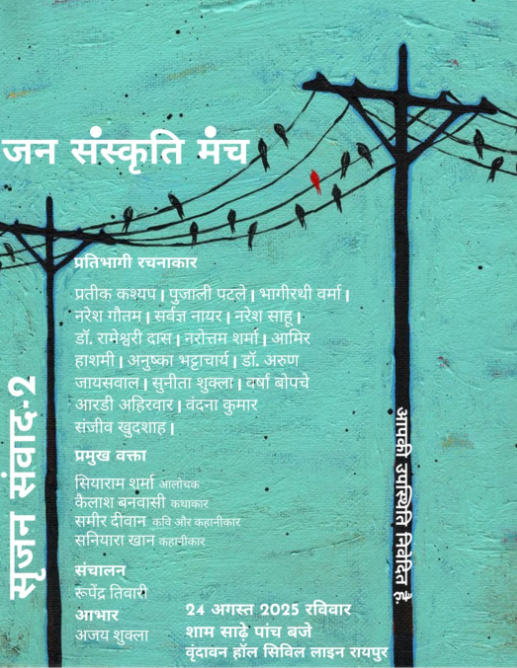 जन संस्कृति मंच
सृजन संवाद-2
प्रतिभागी रचनाकार
प्रतीक कश्यप | पुजाली पटले | भागीरथी वर्मा |
नरेश गौतम | सर्वज्ञ नायर | नरेश साहू |
डॉ. रामेश्वरी दास | नरोत्तम शर्मा | आमिर
हाशमी | अनुष्का भट्टाचार्य | डॉ. अरुण
जायसवाल | सुनीता शुक्ला | वर्षा बोपचे
आरडी अहिरवार | वंदना कुमार
संजीव खुदशाह |
प्रमुख वक्ता
सियाराम शर्मा आलोचक
कैलाश बनवासी कथाकार
समीर दीवान कवि और कहानीकार
सनियारा खान कहानीकार
संचालन
रूपेंद्र तिवारी
आभार
अजय शुक्ला
24 अगस्त 2025 रविवार
शाम साढ़े पांच बजे
वृंदावन हॉल सिविल लाइन रायपुर
आपकी उपस्थिति निवेदित है.